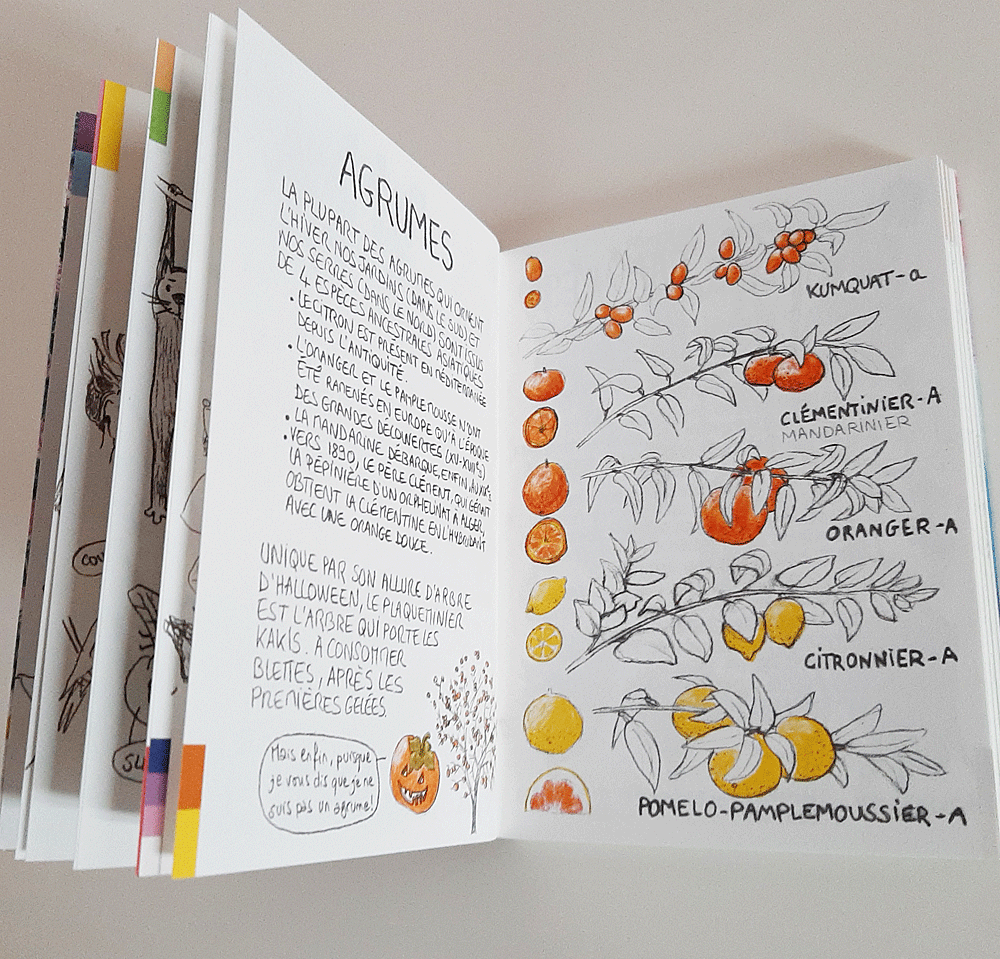 AGRUMES
LA PLUPART DES AGRUMES QUI ORNENT
L'HIVER NOS JARDINS (DANS LE SUD) ET
NOS SERRES (DANS LE NORD) SONT ISSUS
DE 4 ESPÈCES ANCESTRALES ASIATIQUES
• LE CITRON EST PRÉSENT EN MÉDITERRANÉE
DEPUIS L'ANTIQUITÉ.
• L'ORANGER ET LE PAMPLEMOUSSE N'ONT
ÉTÉ RAMENÉS EN EUROPE QU'À L'ÉPOQUE
DES GRANDES DÉCOUVERTES (XV-XVIIe s)
• LA MANDARINE DÉBARQUE, ENFIN, AU XIXe s
• VERS 1890, LE PÈRE CLÉMENT, QUI GÉRAIT
LA PÉPINIÈRE D'UN ORPHELINAT À ALGER,
OBTIENT LA CLÉMENTINE EN L'HYBRIDANT
AVEC UNE ORANGE DOUCE.
UNIQUE PAR SON ALLURE D'ARBRE
D'HALLOWEEN, LE PLAQUEMINIER
EST L'ARBRE QUI PORTE LES
KAKIS. A CONSOMMER
BLETTES, APRÈS LES
PREMIÈRES GELÉES.
Mais enfin, puisque
je vous dis que je ne
suis pas un agrume!
KUMQUAT-a
CLÉMENTINIER-A
MANDARINIER
ORANGER-A
CITRONNIER-A
POMELO-PAMPLEMOUSSIER-A